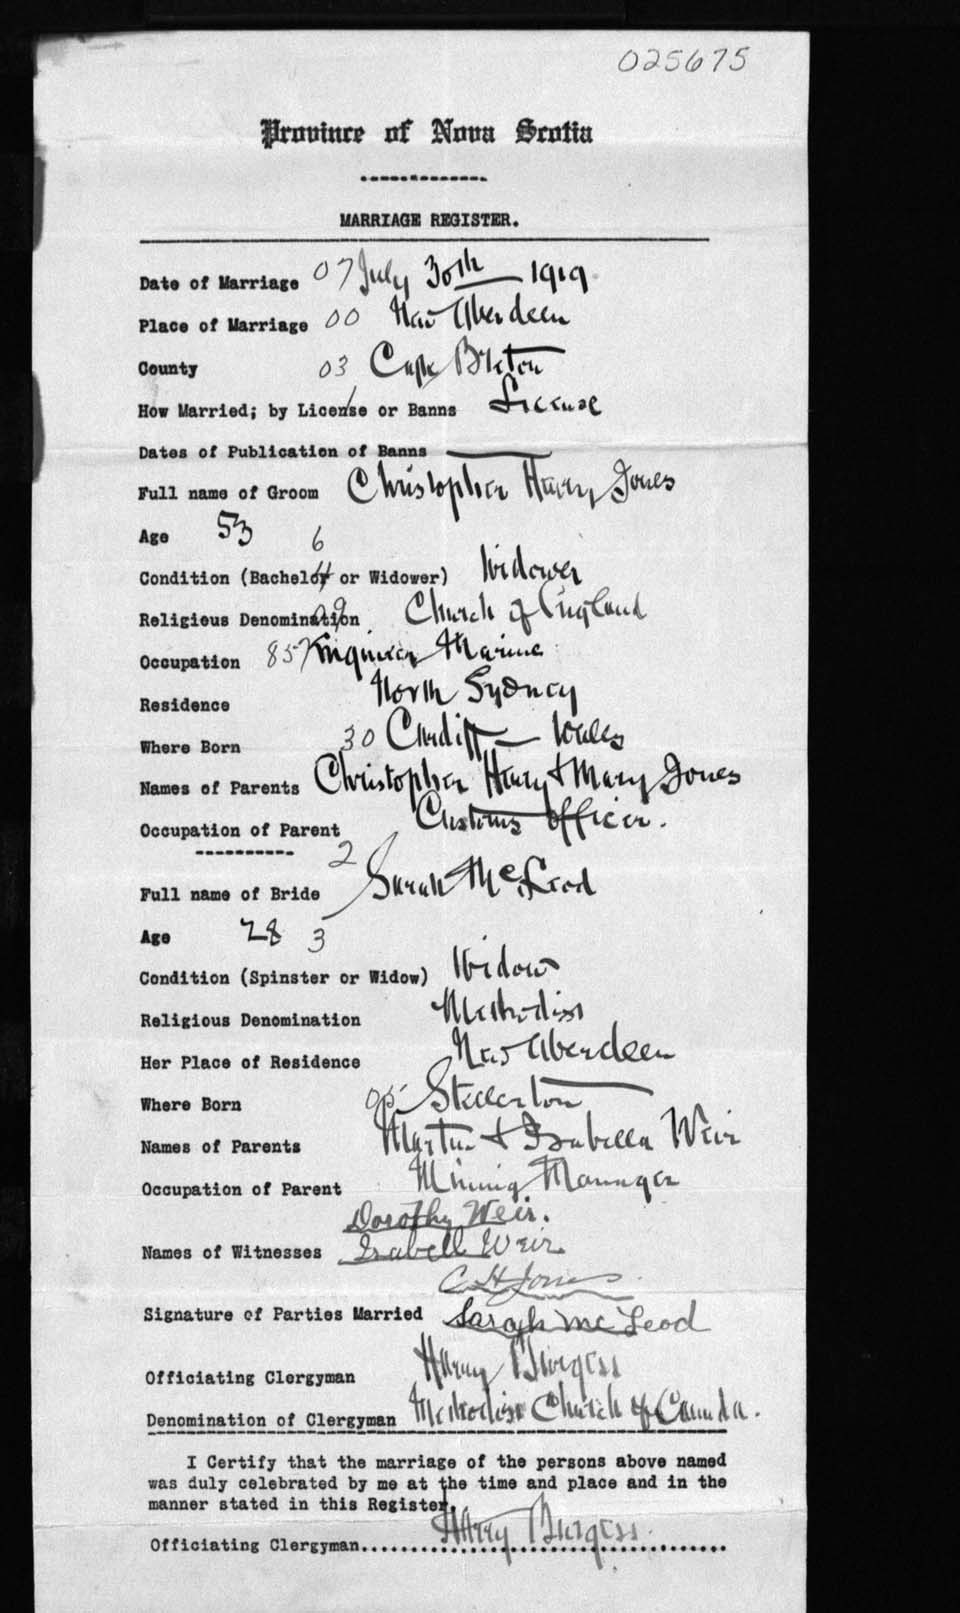 025675
Province of Nova Scotia
MARRIAGE REGISTER.
Date of Marriage 07 July 30th 1919.
Place of Marriage 00 New Aberdeen
County 03 Cape Breton
How Married; by License or Banns License
Dates of Publication of Banns —
Full name of Groom Christopher Henry Jones
Age 53 6
Condition (Bachelor or Widower) Widower
Religious Denomination 09 Church of England
Occupation 85 Engineer Marine
Residence North Sydney
Where Born 30 Cardiff — Wales
Names of Parents Christopher Henry & Mary Jones
Occupation of Parent Customs Officer.
2
Full name of Bride Sarah McLeod
Age 28 3
Condition (Spinster or Widow) Widow
Religious Denomination Methodist
Her Place of Residence New Aberdeen
Where Born 05 Stellerton
Names of Parents Martin & Isabella Weir
Occupation of Parent Mining Manager
Dorothy Weir.
Names of Witnesses Isabell Weir
C H Jones
Signature of Parties Married Sarah McLeod
Officiating Clergyman Harry Burgess
Denomination of Clergyman Methodist Church of Canada.
I Certify that the marriage of the persons above named
was duly celebrated by me at the time and place and in the
manner stated in this Register.
Officiating Clergyman.... Harry Burgess